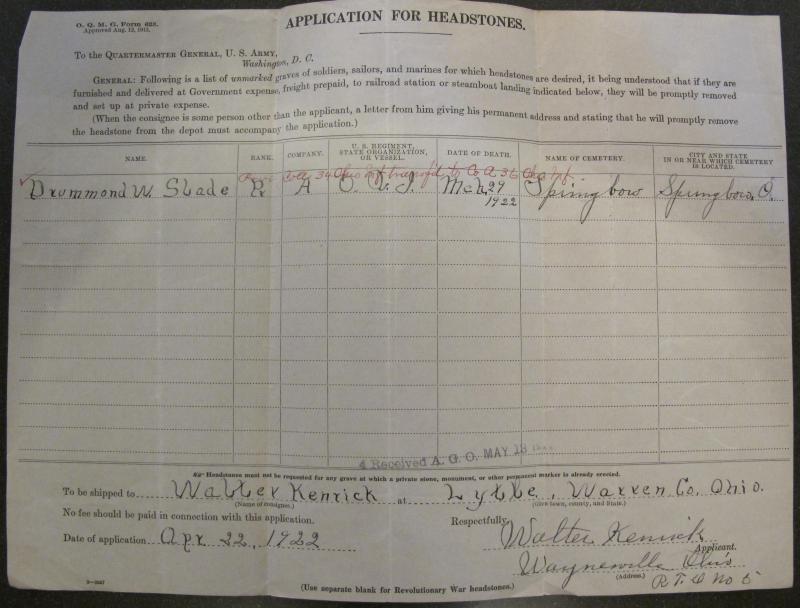 O. Q. M. G. Form 623.
Approved Aug. 12, 1911.
APPLICATION FOR HEADSTONES.
To the QUARTERMASTER GENERAL, U. S. ARMY,
Washington, D. C.
GENERAL: Following is a list of unmarked graves of soldiers, sailors, and marines for which headstones are desired, it being understood that if they are
furnished and delivered at Government expense, freight prepaid, to railroad station or steamboat landing indicated below, they will be promptly removed
and set up at private expense.
(When the consignee is some person other than the applicant, a letter from him giving his permanent address and stating that he will promptly remove
the headstone from the depot must accompany the application.)
NAME. RANK. COMPANY. U. S. REGIMENT, STATE ORGANIZATION, OR VESSEL. DATE OF DEATH. NAME OF CEMETERY. CITY AND STATE IN OR NEAR WHICH CEMETERY IS LOCATED.
Co A 34 Ohio Inf transfd to Co A 36 Ohio Inf.
Drummond W. Slade P. A O. V. I. Mch, 29 1922 Springboro Springboro, O.
Received A. G. O. MAY 13
Headstones must not be requested for any grave at which a private stone, monument, or other permanent marker is already erected.
To be shipped to Walter Kenrick at Lytle, Warren Co. Ohio.
(Name of consignee.) (Give town, county, and State.)
No fee should be paid in connection with this application.
Respectfully,
Date of application Apr 22, 1922
Walter Kenrick
Applicant.
Waynesville Ohio
(Address.)
No 5
3—2037
(Use separate blank for Revolutionary War headstones.)